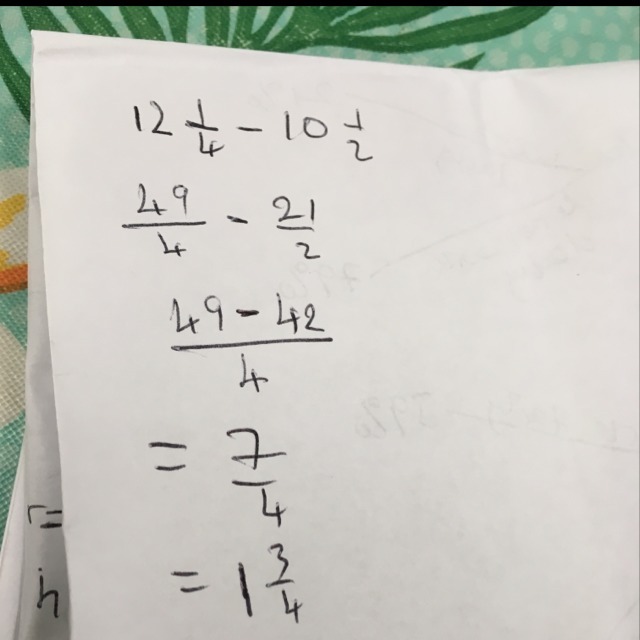 12 1/4 - 10 1/2
49/4 - 21/2
(49 - 42)/4
= 7/4
= 1 3/4
r=
h